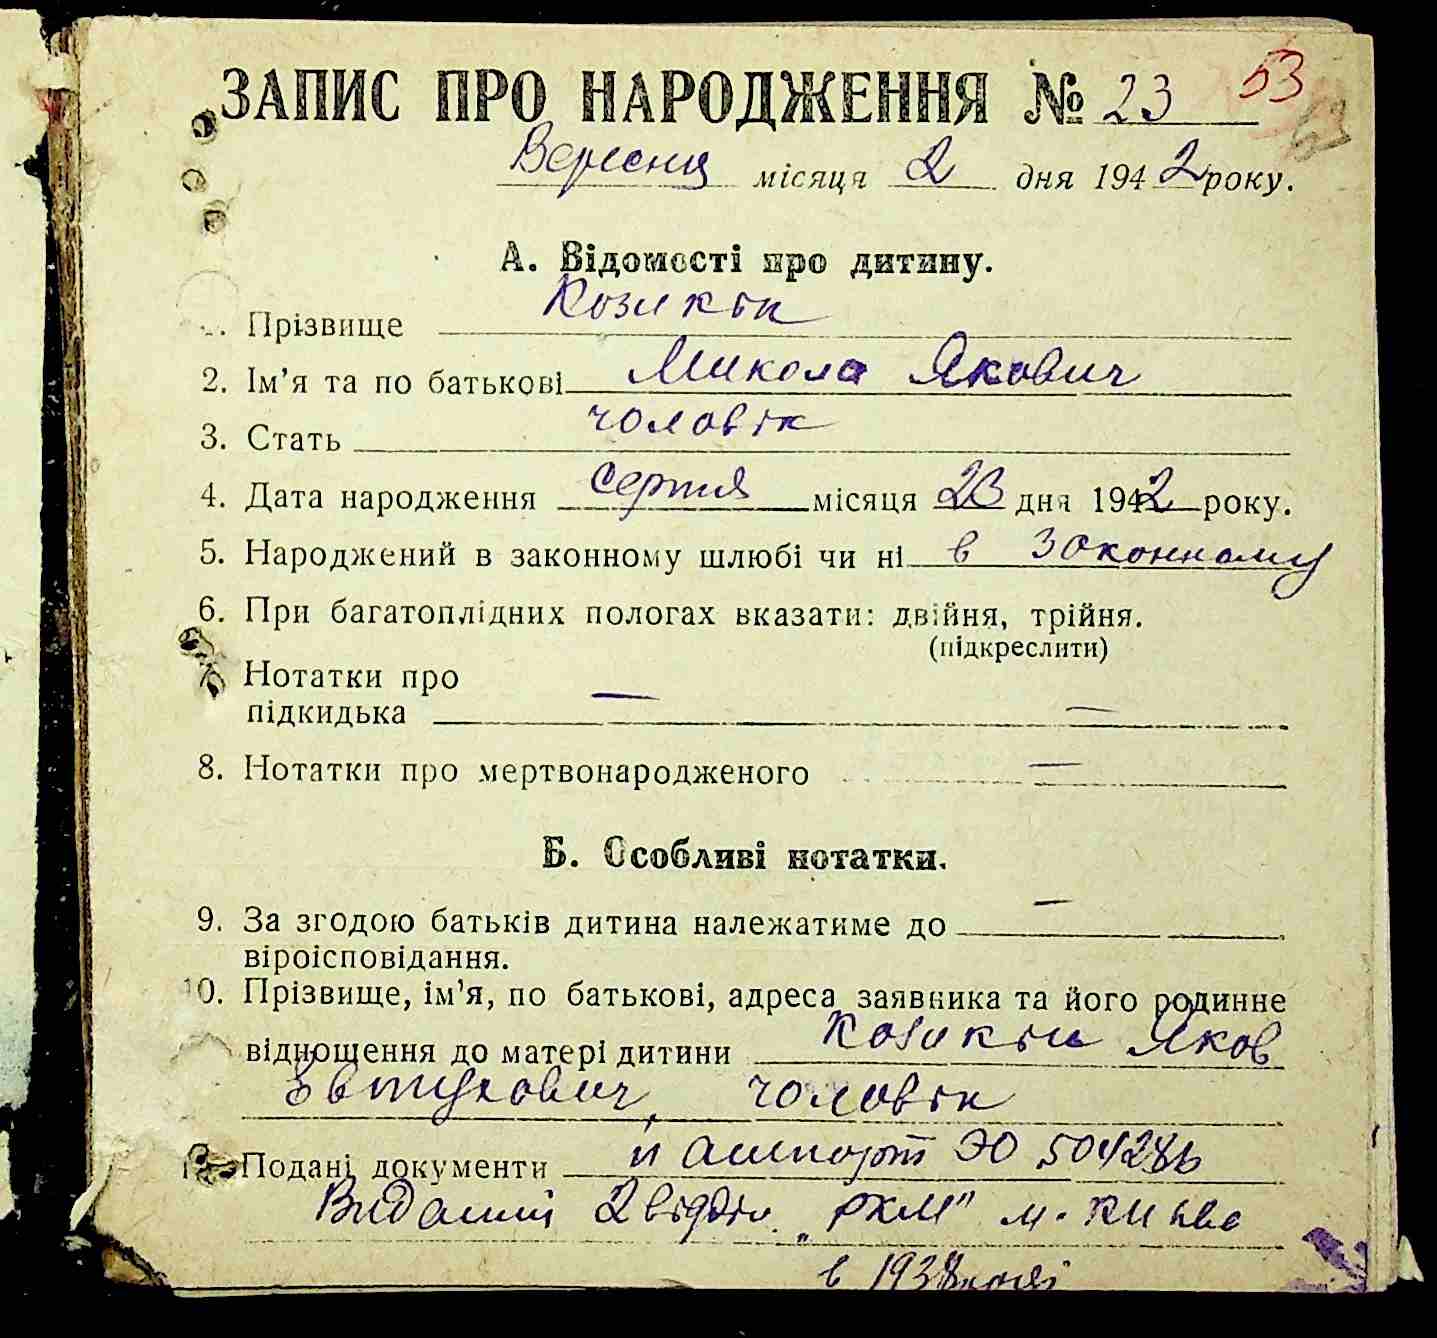 ЗАПИС ПРО НАРОДЖЕННЯ № 23 53
Вересня місяця 2 дня 1942 року.
А. Відомості про дитину.
1. Прізвище Козикін
2. Ім’я та по батькові Микола Якович
3. Стать чоловік
4. Дата народження серпня місяця 23 дня 1942 року.
5. Народжений в законному шлюбі чи ні в законному
6. При багатоплідних пологах вказати: двійня, трійня.
(підкреслити)
7. Нотатки про
підкидька — —
8. Нотатки про мертвонародженого —
Б. Особливі нотатки.
9. За згодою батьків дитина належатиме до —
віроісповідання.
10. Прізвище, ім’я, по батькові, адреса заявника та його родинне
відношення до матері дитини Козикін Яков
Евтухович, чоловік
Подані документи пашпорт ЭО 504286
Виданий 2 відділ. „РКМ" м. Києва
в 1938 році